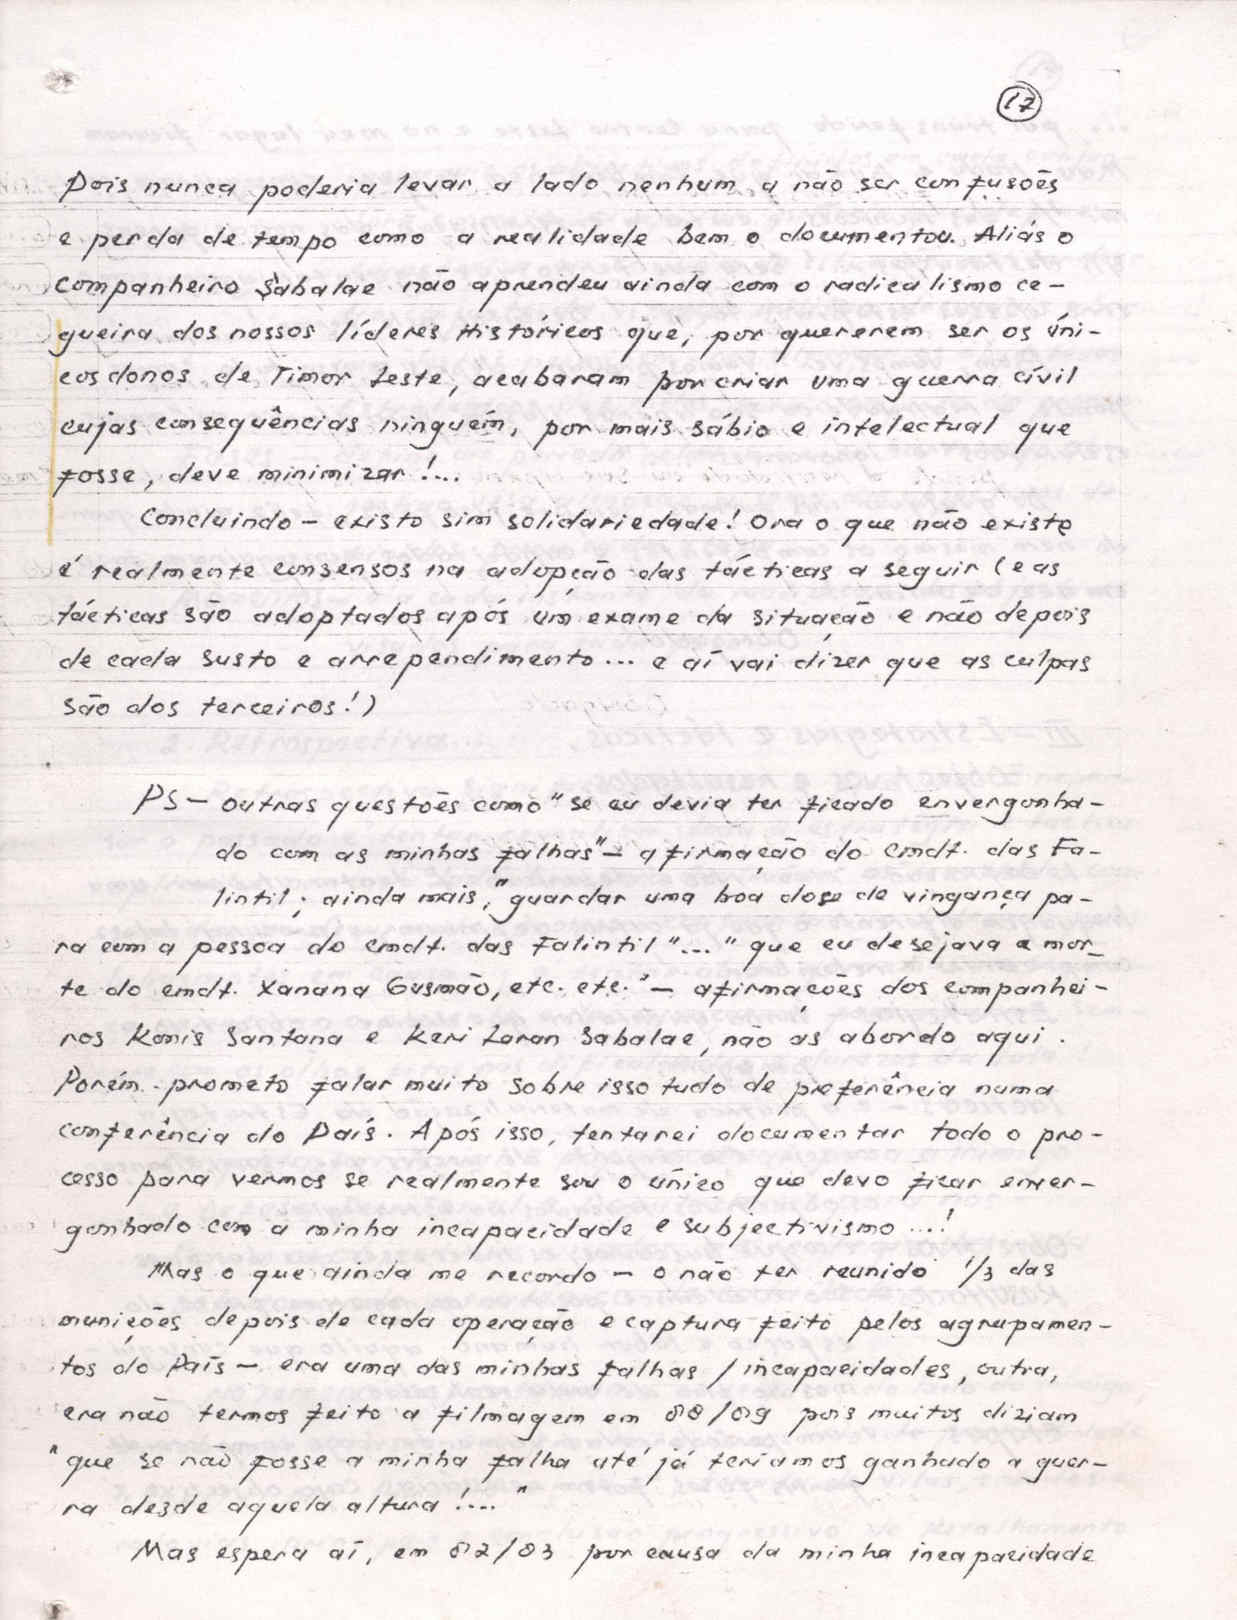 17
Pois nunca poderia levar a lado nenhum, a não ser confusoēs
e perda de tempo como a realidade bem o documentou. Aliás o
companheiro Sabalae não aprendeu ainda com o radicalismo ce-
gueira dos nossos líderes Históricos que, por quererem ser os úni-
cos donos de Timor Leste, acabaram por criar uma guerra cívil
cujas consequências ninguém, por mais sábio e intelectual que
fosse, deve minimizar!...
Concluindo - existo sim solidariedade! Ora o que não existe
é realmente consensos na adopção das tácticas a seguir (e as
tácticas são adoptados após um exame da situação e não depois
de cada susto e arrependimento... e aí vai dizer que as culpas
são dos terceiros!)
PS - outras questoēs como "se eu devia ter ficado envergonha-
do com as minhas falhas" - afirmação do cmdt. das Fa-
lintil; ainda mais, "guardar uma boa dose de vingança pa-
ra com a pessoa do cmdt. das Falintil"..." que eu desejava a mor-
te do cmdt. Xanana Gusmão, etc. etc." - afirmaçoēs dos companhei-
ros Konis Santana e Keri Laran Sabalae, não as abordo aqui.
Porém prometo falar muito sobre isso tudo de preferência numa
conferência do País. Após isso, tentarei documentar todo o pro-
cesso para vermos se realmente sou o único que devo ficar enver-
gonhado com a minha incapacidade e subjectivismo...!
Mas o que ainda me recordo - o não ter reunido 1/3 das
muniçoēs depois de cada operação e captura feito pelos agrupamen-
tos do País - era uma das minhas falhas / incapacidades, outra,
era não termos feito a filmagem em 88/89 pois muitos diziam
"que se não fosse a minha falha até já teriamos ganhado a guer-
ra desde aquela altura!...."
Mas espera aí, em 82/83 por causa da minha incapacidade